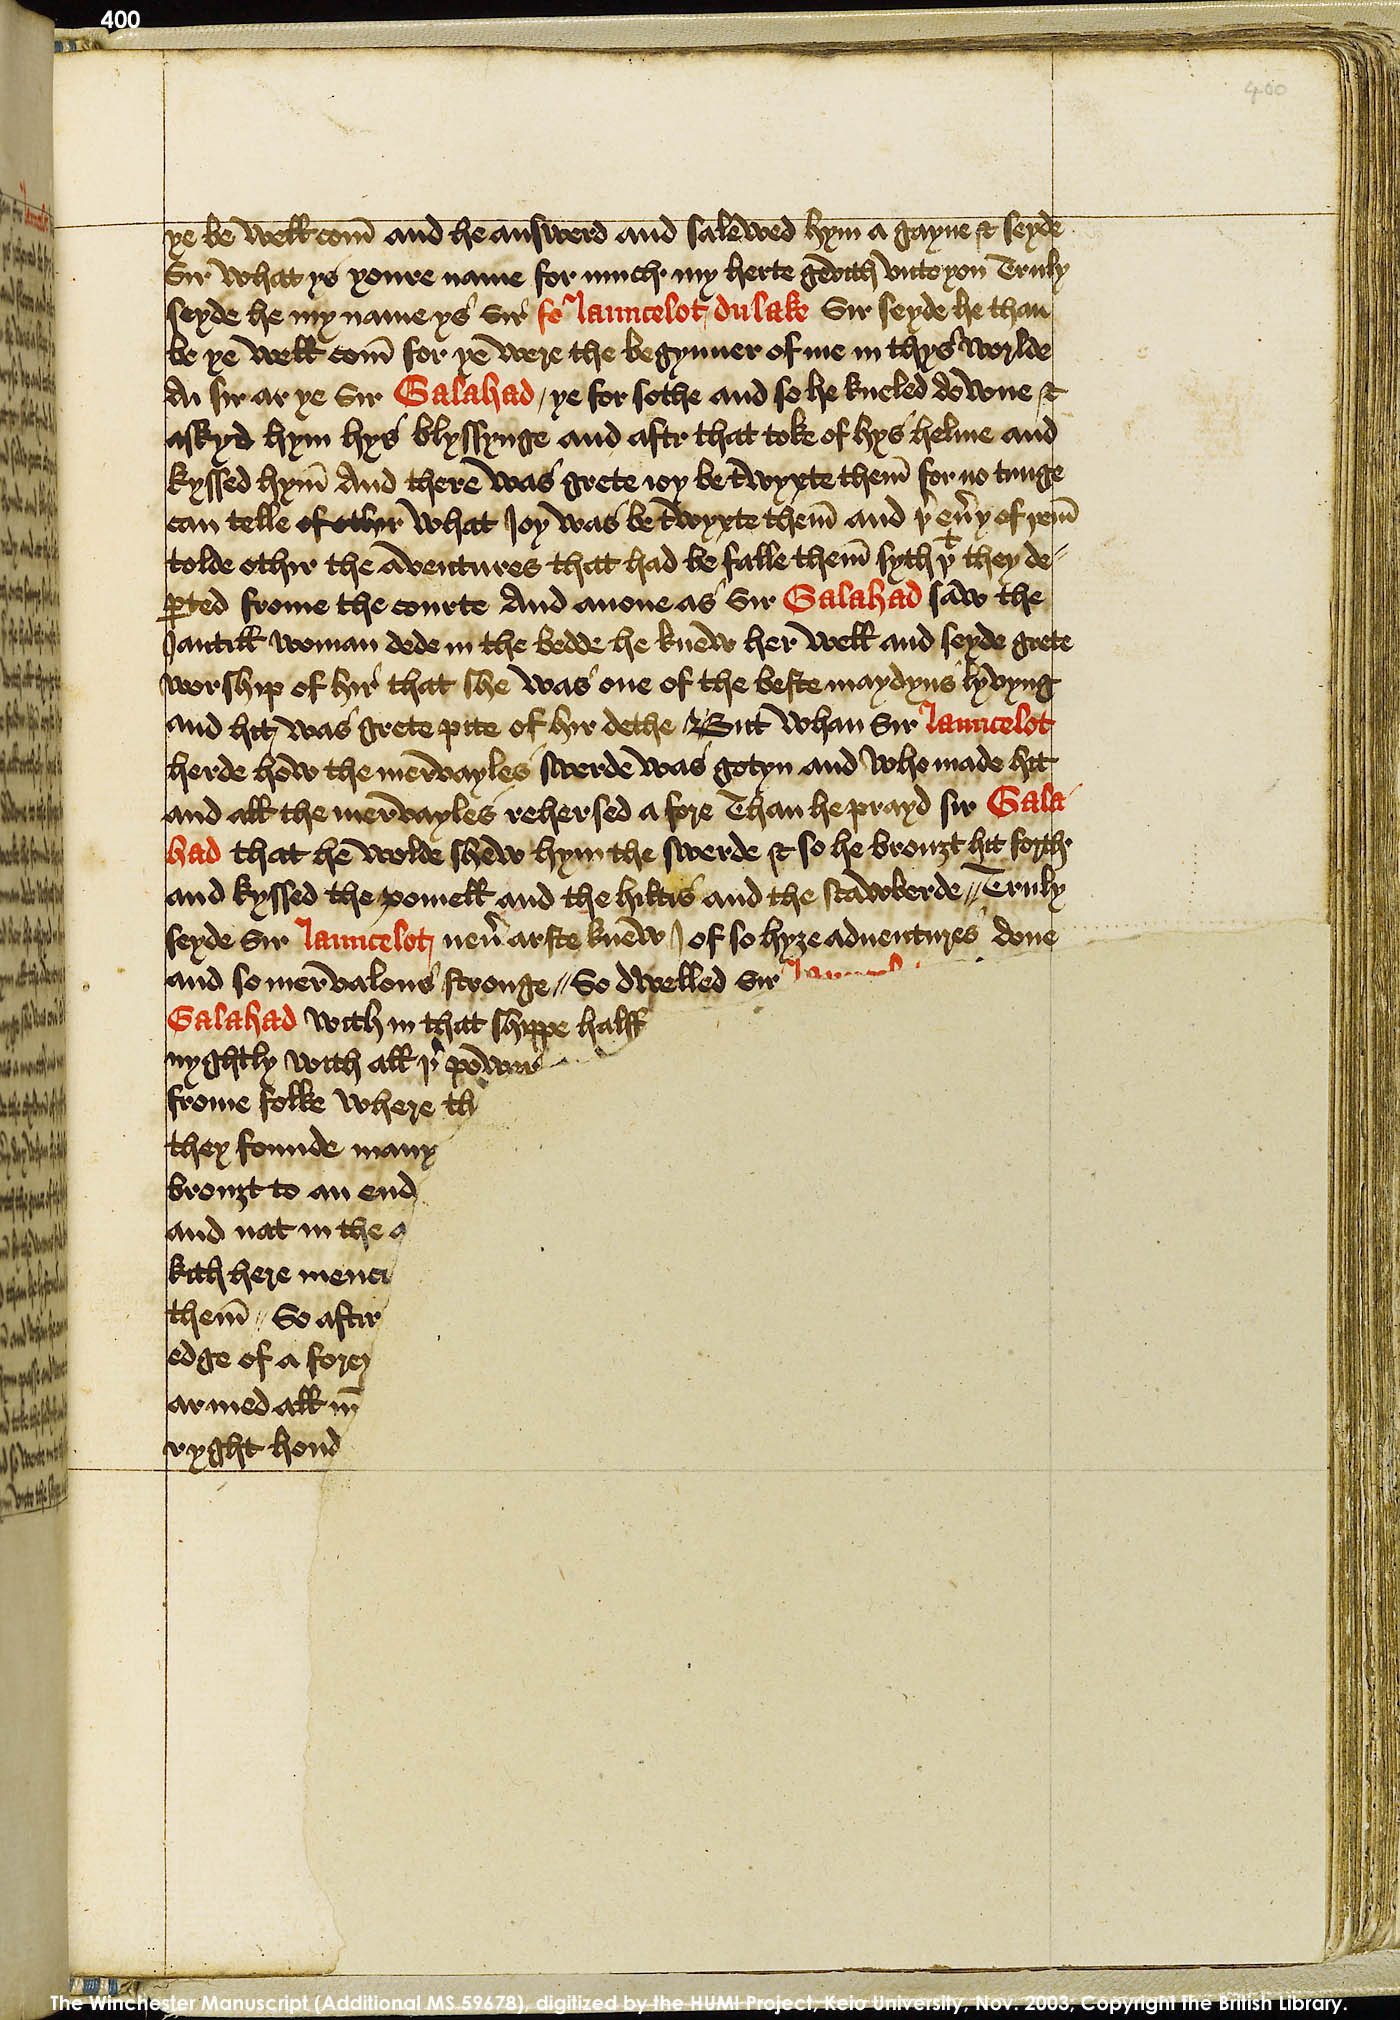 400
400
ye be well com̄ and he answerd and salewed hym a gayne & seyde
Sir what ys youre name for much my herte gevith unto you Truly
seyde he my name ys Sir Launcelot du lake Sir seyde he than
be ye well com̄ for ye were the begynner of me in thys worlde
A sir ar ye Sir Galahad / ye for sothe and so he kneled downe &
askyd hym hys blyssynge and aftr that toke of hys helme and
kyssed hym̄ And there was grete ioy be twyxte them̄ for no tunge
can telle of othir what Joy was be twyxte them̄ and þr eûy of þem̄
tolde othir the Aventures that had be falle them̄ syth þt they de
ꝑted frome the courte And anone as Sir Galahad saw the
Jantill woman dede in the bedde he knew her well and seyde grete
worship of hir that she was one of the beste maydyns lyvyng
and hit was grete pite of hir dethe / But whan Sir Launcelot
herde how the mervayles swerde was gotyn and who made hit
and all the mervayles rehersed a fore Than he prayd sir Gala
had that he wolde shew hym the swerde & so he brouȝt hit forth
and kyssed the pomell and the hiltis and the scawberde // Truly
seyde Sir Launcelot neû arste knew I of so hyȝe adventures done
and so mervalous stronge // So dwelled Sir Launcelot
Galahad with in that shippe halff
nyghtly with all þr power
frome folke where th
they founde many
brouȝt to an end
and nat in the a
kith here menci
them̄ // So aftir
edge of a fore
armed all in
ryght hond
The Winchester Manuscript (Additional MS 59678), digitized by the HUMI Project, Keio University, Nov. 2003; Copyright The British Library.